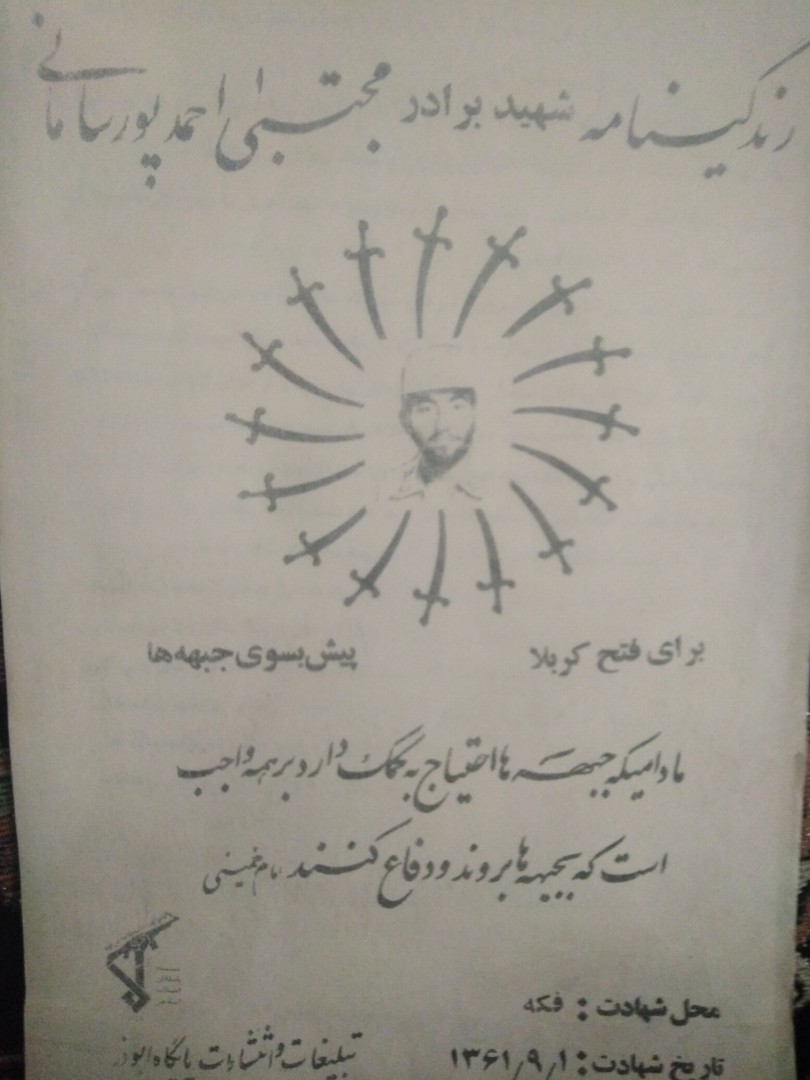 زندگینامه شهید برادر مجتبی احمدپور سامانی
برای فتح کربلا پیش بسوی جبهه‌ها
مادامیکه جبهه‌ها احتیاج به کمک دارد بر همه واجب
است که بجبهه‌ها بروند و دفاع کنند امام خمینی
محل شهادت : فکه
تاریخ شهادت : ۱۳۶۱٫۹٫۱
تبلیغات و انتشارات پایگاه ابوذر